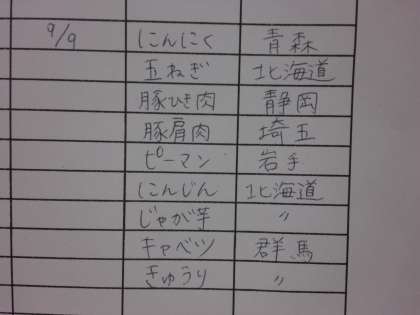 9/9 にんにく 青森
玉ねぎ 北海道
豚ひき肉 静岡
豚肩肉 埼玉
ピーマン 岩手
にんじん 北海道
じゃが芋 〃
キャベツ 群馬
きゅうり 〃